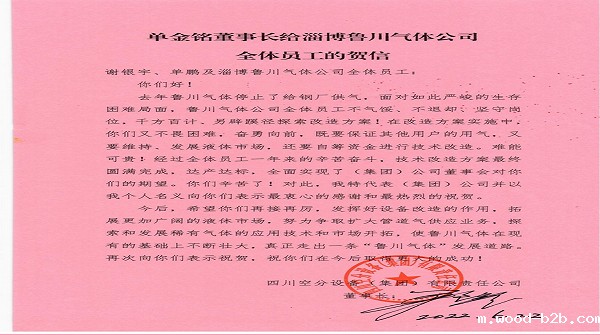 单金铭董事长给淄博鲁川气体公司
全体员工的贺信
谢银宇、单鹏及淄博鲁川气体公司全体员工：
你们好！
去年鲁川气体停止了给钢厂供气，面对如此严峻的生存
困难局面，鲁川气体公司全体员工不气馁、不退却、坚守岗
位，千方百计、另辟蹊径探索改造方案！在改造方案实施中，
你们又不畏困难，奋勇向前，既要保证其他用户的用气，又
要维持、发展液体市场，还要自筹资金进行技术改造。难能
可贵！经过全体员工一年来的辛苦奋斗，技术改造方案最终
圆满完成，达产达标，全面实现了（集团）公司董事会对你
们的期望。你们辛苦了！对此，我特代表（集团）公司并以
我个人名义向你们表示最衷心的感谢和最热烈的祝贺。
今后，希望你们再接再厉，发挥好设备改造的作用，拓
展更加广阔的液体市场，努力争取扩大管道气供应业务，探
索和发展稀有气体的应用技术和市场开拓，使鲁川气体在现
有的基础上不断壮大，真正走出一条“鲁川气体”发展道路。
再次向你们表示祝贺，祝你们在今后取得更大的成功！
四川空分设备（集团）有限责任公司
董事长：
2022
m.wood-b2b.com